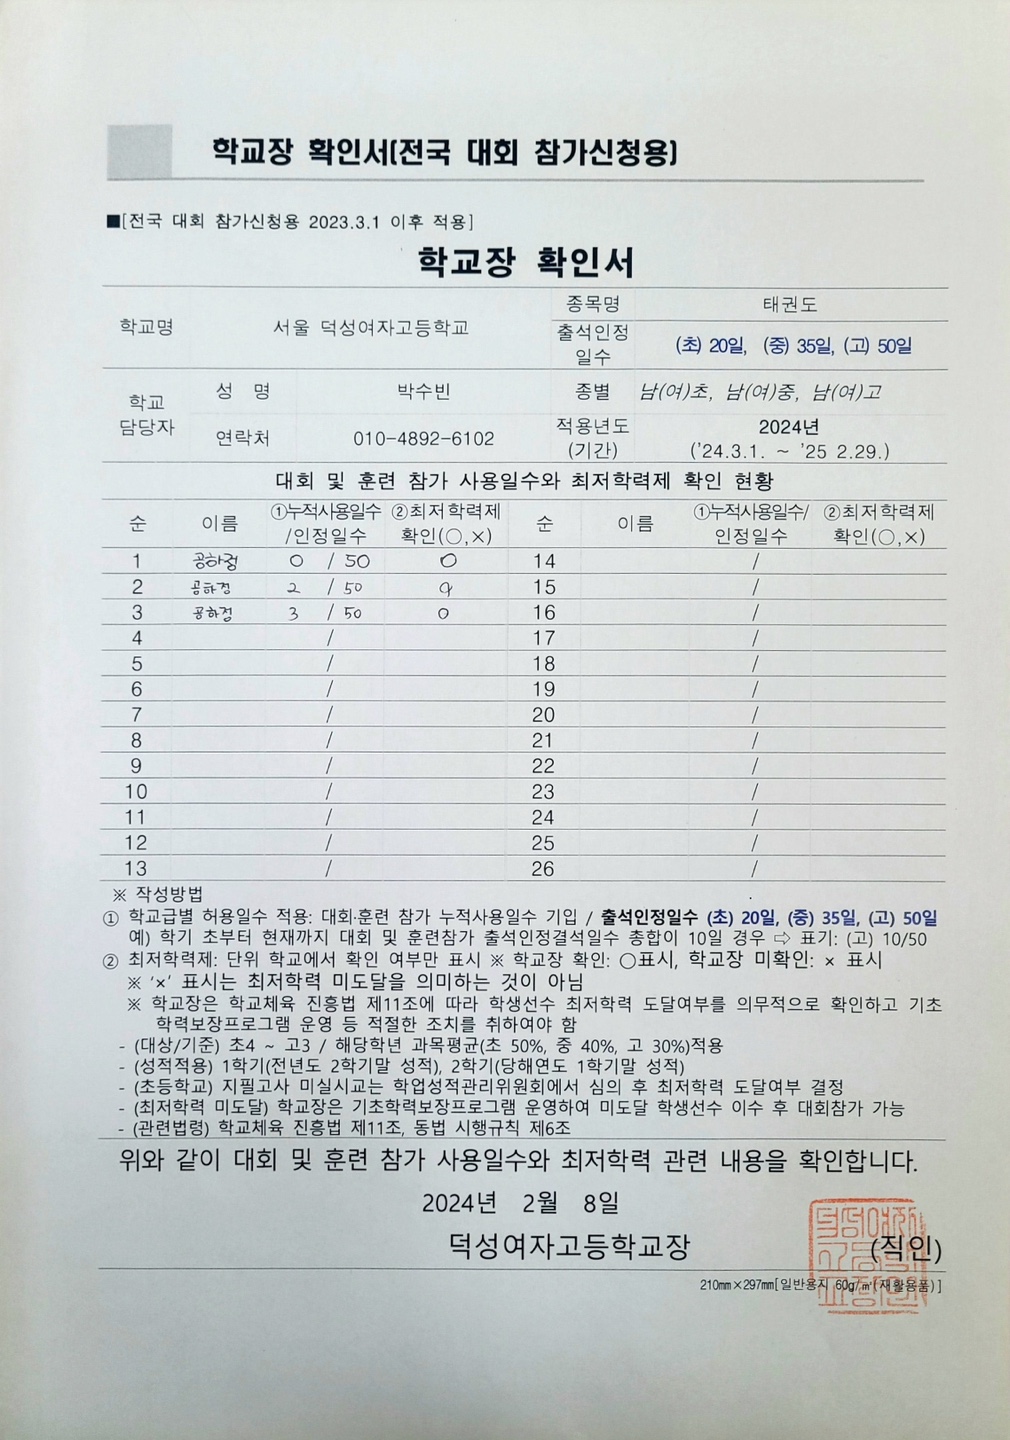 학교장 확인서(전국 대회 참가신청용)
■[전국 대회 참가신청용 2023.3.1 이후 적용]
학교장 확인서
학교명 서울 덕성여자고등학교 종목명 태권도
출석인정 일수 (초) 20일, (중) 35일, (고) 50일
학교 담당자 성 명 박수빈 종별 남(여)초, 남(여)중, 남(여)고
연락처 010-4892-6102 적용년도 (기간) 2024년 ('24.3.1. ~ '25 2.29.)
대회 및 훈련 참가 사용일수와 최저학력제 확인 현황
순 이름 ①누적사용일수 /인정일수 ②최저학력제 확인(○,×) 순 이름 ①누적사용일수/ 인정일수 ②최저학력제 확인(○,×)
1 공하정 0 / 50 O 14 /
2 공하정 2 / 50 O 15 /
3 공하정 3 / 50 O 16 /
4 / 17 /
5 / 18 /
6 / 19 /
7 / 20 /
8 / 21 /
9 / 22 /
10 / 23 /
11 / 24 /
12 / 25 /
13 / 26 /
※ 작성방법
① 학교급별 허용일수 적용: 대회·훈련 참가 누적사용일수 기입 / 출석인정일수 (초) 20일, (중) 35일, (고) 50일
예) 학기 초부터 현재까지 대회 및 훈련참가 출석인정결석일수 총합이 10일 경우 ⇨ 표기: (고) 10/50
② 최저학력제: 단위 학교에서 확인 여부만 표시 ※ 학교장 확인: ○표시, 학교장 미확인: × 표시
※ '×' 표시는 최저학력 미도달을 의미하는 것이 아님
※ 학교장은 학교체육 진흥법 제11조에 따라 학생선수 최저학력 도달여부를 의무적으로 확인하고 기초
학력보장프로그램 운영 등 적절한 조치를 취하여야 함
- (대상/기준) 초4 ~ 고3 / 해당학년 과목평균(초 50%, 중 40%, 고 30%)적용
- (성적적용) 1학기(전년도 2학기말 성적), 2학기(당해연도 1학기말 성적)
- (초등학교) 지필고사 미실시교는 학업성적관리위원회에서 심의 후 최저학력 도달여부 결정
- (최저학력 미도달) 학교장은 기초학력보장프로그램 운영하여 미도달 학생선수 이수 후 대회참가 가능
- (관련법령) 학교체육 진흥법 제11조, 동법 시행규칙 제6조
위와 같이 대회 및 훈련 참가 사용일수와 최저학력 관련 내용을 확인합니다.
2024년 2월 8일
덕성여자고등학교장 (직인)
210mm×297mm[일반용지 60g/㎡(재활용품)]